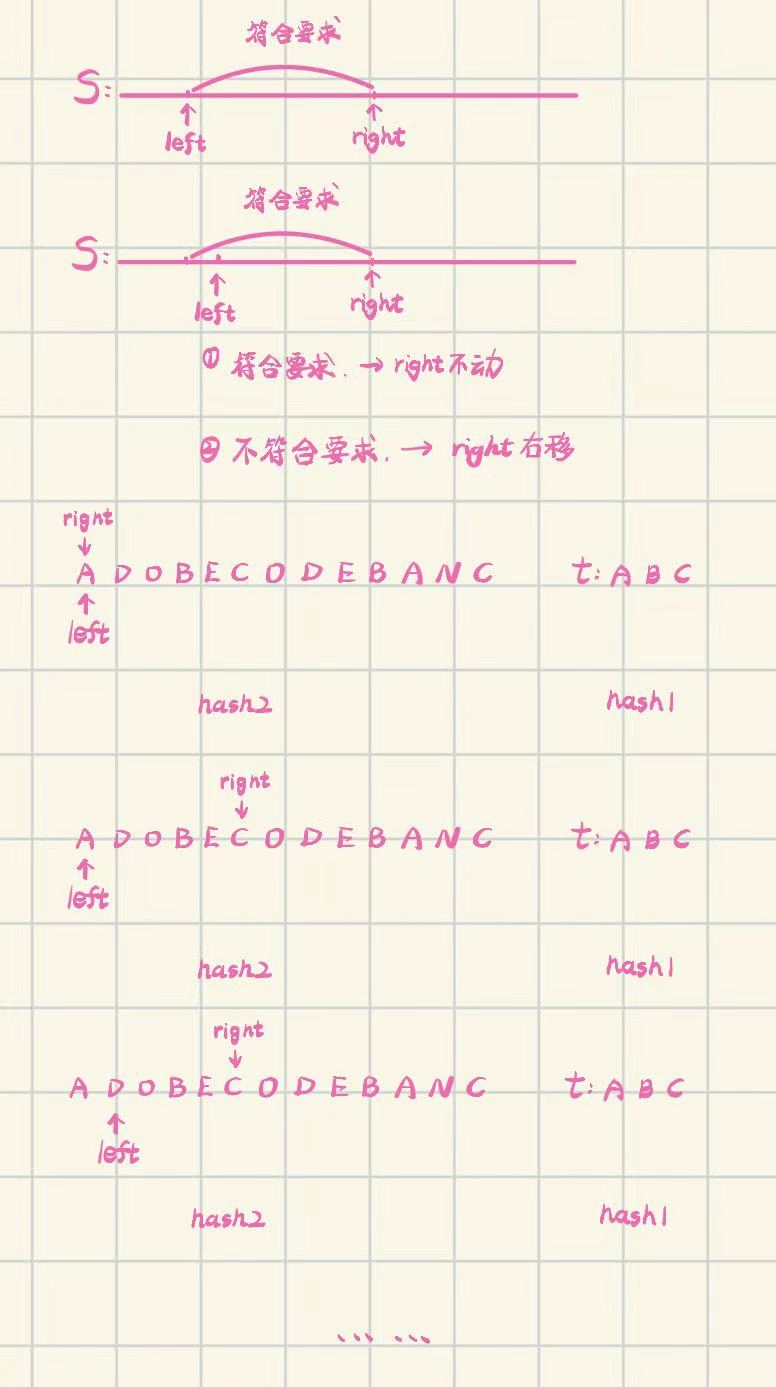 符合要求
S:
left right
符合要求
S:
left right
① 符合要求. → right不动
② 不符合要求. → right右移
right
↓
A D O B E C O D E B A N C t: A B C
↑
left
hash2 hash1
right
↓
A D O B E C O D E B A N C t: A B C
↑
left
hash2 hash1
right
↓
A D O B E C O D E B A N C t: A B C
↑
left
hash2 hash1
... ...